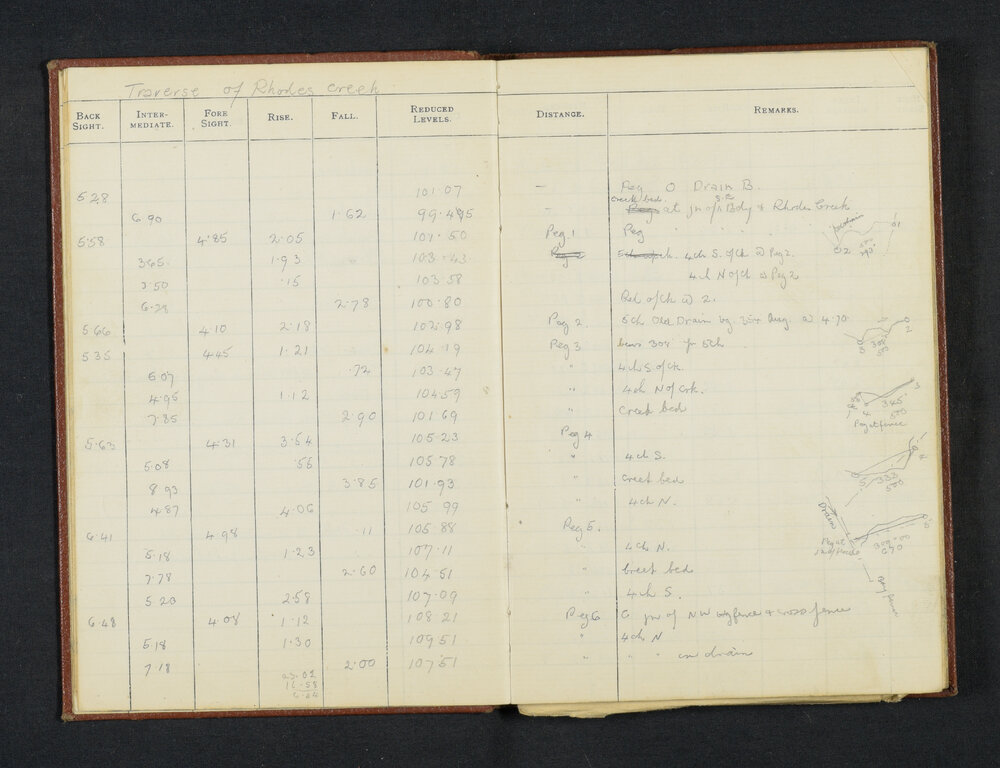 Traverse of Rhodes Creek
BACK SIGHT. INTER-MEDIATE. FORE SIGHT. RISE. FALL. REDUCED LEVELS. DISTANCE. REMARKS.
5.28 101.07 - Peg 0 Drain B.
6.90 1.62 99.45 - creek bed at jn of Bdy & Rhodes Creek
5.58 4.85 2.05 101.50 Peg 1 Peg
3.65 1.93 103.43 4ch S. of ck @ Peg 2.
3.50 .15 103.58 4ch N of ck @ Peg 2
6.28 2.78 100.80 Bed of ck @ 2.
5.66 4.10 2.18 102.98 Peg 2. 5ch Old Drain @ 4.70
5.35 4.45 1.21 104.19 Peg 3 5ch
6.07 .72 103.47 " 4ch S. of ck.
4.95 1.12 104.59 " 4ch N of crk.
7.85 2.90 101.69 " Creek bed
5.63 4.31 3.54 105.23 Peg 4
5.08 .55 105.78 " 4ch S.
8.93 3.85 101.93 " creek bed
4.87 4.06 105.99 " 4ch N.
6.41 4.98 .11 105.88 Peg 5.
5.18 1.23 107.11 " 4ch N.
7.78 2.60 104.51 " Creek bed
5.20 2.58 107.09 " 4ch S.
6.48 4.08 1.12 108.21 Peg 6 @ jn of NW bdy fence & cross fence
5.18 1.30 109.51 " 4ch N
7.18 2.00 107.51 " " " in drain
23.02
16.58
6.44
Peg at fence
Drain
Bdy fence